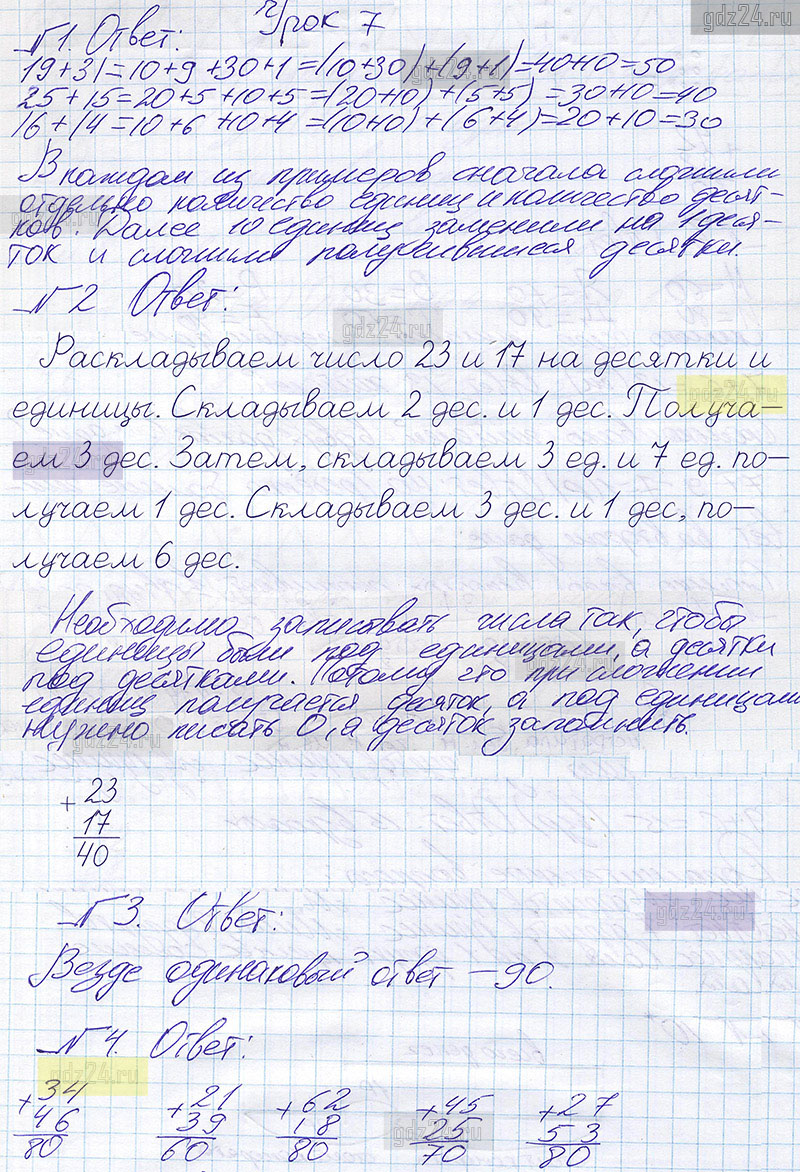 Урок 7
gdz24.ru
№1. Ответ:
gdz24.ru
19+31=10+9+30+1=(10+30)+(9+1)=40+10=50
25+15=20+5+10+5=(20+10)+(5+5)=30+10=40
16+14=10+6+10+4=(10+10)+(6+4)=20+10=30
В каждом из примеров сначала сложили
отдельно количество единиц и количество десят-
gdz24.ru
ков. Далее 10 единиц заменили на 1 деся-
ток и сложили получившиеся десятки.
№2 Ответ:
gdz24.ru
Раскладываем число 23 и 17 на десятки и
gdz24.ru
единицы. Складываем 2 дес. и 1 дес. Получа-
ем 3 дес. Затем, складываем 3 ед. и 7 ед. по-
лучаем 1 дес. Складываем 3 дес. и 1 дес, по-
лучаем 6 дес.
Необходимо записывать числа так, чтобы
единицы были под единицами, а десятки
под десятками. Потому что при сложении
единиц получается десяток, а под единицами
нужно писать 0, а десяток запомнить.
gdz24.ru
+ 23
17
40
№3. Ответ:
gdz24.ru
Везде одинаковый ответ – 90.
№4. Ответ:
gdz24.ru
+34 +21 +62 +45 +27
46 39 18 25 53
gdz24.ru
80 60 80 70 80